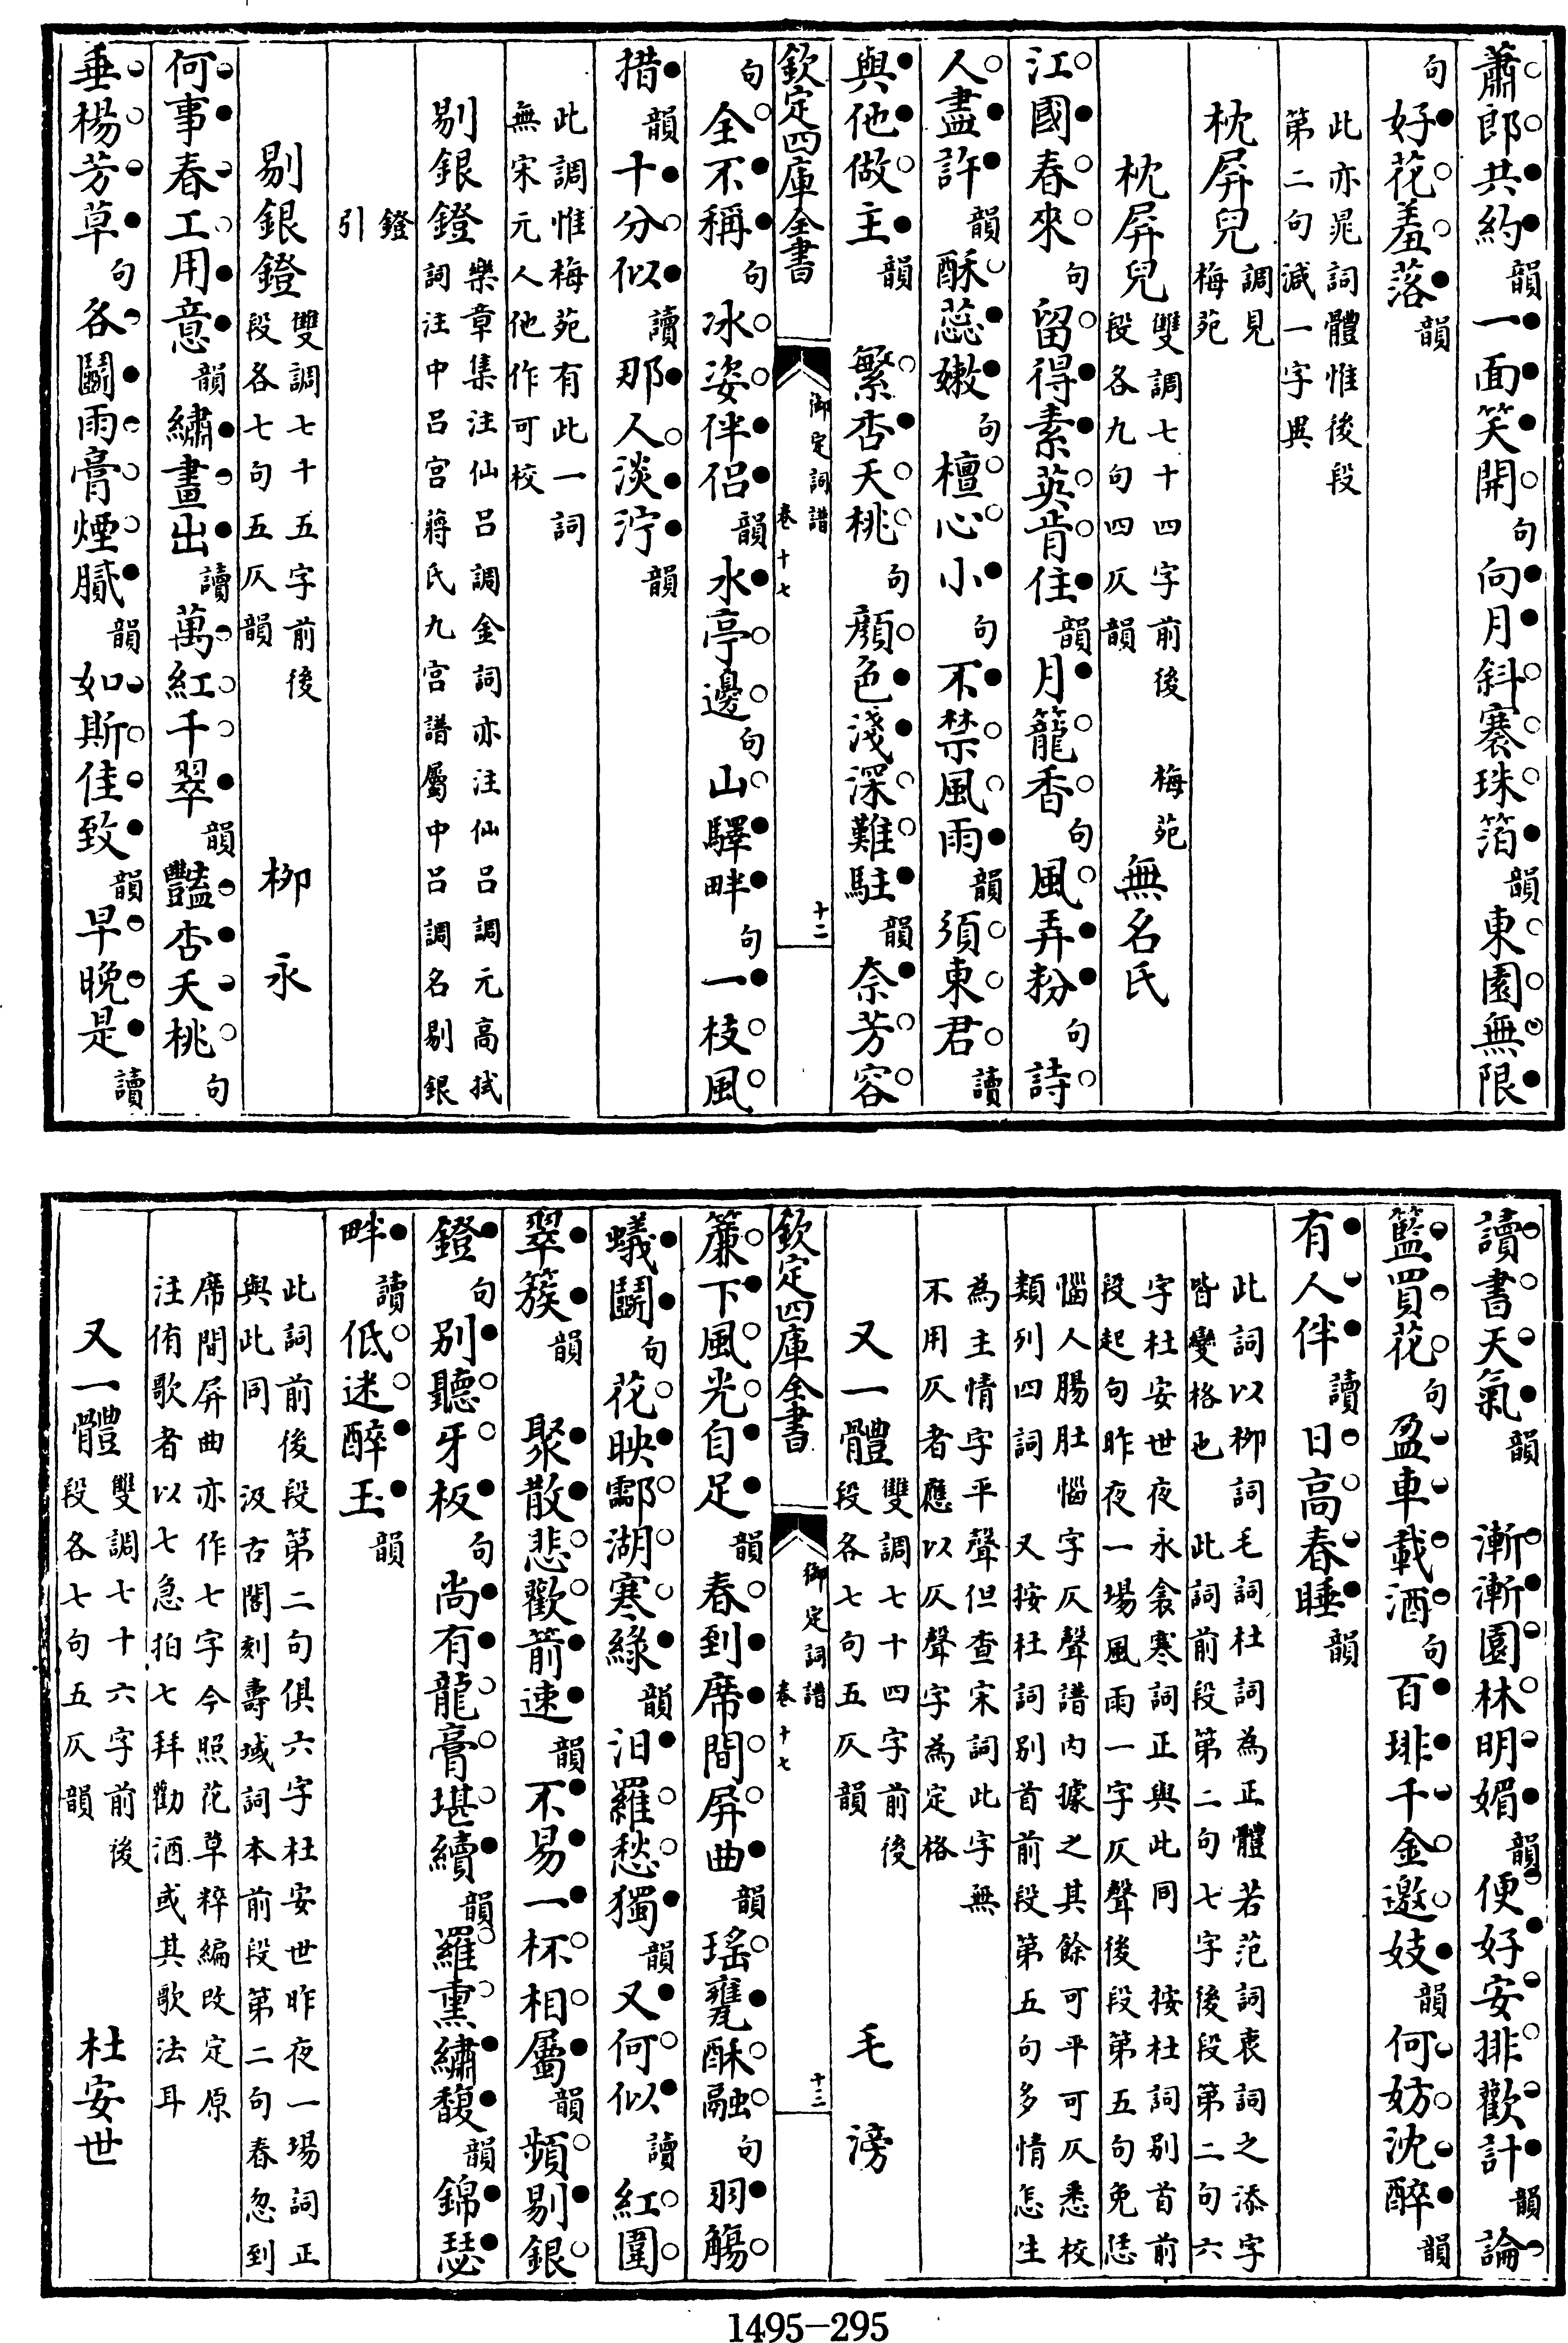 蕭郎共約韻一面笑開句向月斜褰珠箔韻東園無限
句好花羞落韻
此亦晁詞體惟後段
第二句減一字異
枕屏兒調見
梅苑
枕屏兒雙調七十四字前後
段各九句四仄韻
梅苑無名氏
江國春來句留得素英肯住韻月籠香句風弄粉句詩
人盡許韻酥蕊嫩句檀心小句不禁風雨韻須東君讀
與他做主韻 繁杏夭桃句顏色淺深難駐韻奈芳容
欽定四庫全書
御定詞譜
卷十七
十二
句全不稱句冰姿伴侶韻水亭邊句山驛畔句一枝風
措韻十分似讀那人淡泞韻
此調惟梅苑有此一詞
無宋元人他作可校
剔銀鐙樂章集注仙呂調金詞亦注仙呂調元高拭
詞注中呂宮蔣氏九宮譜屬中呂調名剔銀
鐙
引
剔銀鐙雙調七十五字前後
段各七句五仄韻
柳永
何事春工用意韻繡畫出讀萬紅千翠韻豔杏夭桃句
垂楊芳草句各鬭雨膏煙膩韻如斯佳致韻早晚是讀
讀書天氣韻 漸漸園林明媚韻便好安排歡計韻論
籃買花句盈車載酒句百琲千金邀妓韻何妨沈醉韻
有人伴讀日高春睡韻
此詞以柳詞毛詞杜詞為正體若范詞衷詞之添字
皆變格也 此詞前段第二句七字後段第二句六
字杜安世夜永衾寒詞正與此同 按杜詞別首前
段起句昨夜一場風雨一字仄聲後段第五句免恁
惱人腸肚惱字仄聲譜內據之其餘可平可仄悉校
類列四詞 又按杜詞別首前段第五句多情怎生
為主情字平聲但查宋詞此字無
不用仄者應以仄聲字為定格
又一體雙調七十四字前後
段各七句五仄韻
毛滂
欽定四庫全書
御定詞譜
卷十七
十三
簾下風光自足韻春到席間屏曲韻瑤甕酥融句羽觴
蟻鬭句花映酃湖寒綠韻汨羅愁獨韻又何似讀紅圍
翠簇韻 聚散悲歡箭速韻不易一杯相屬韻頻剔銀
鐙句別聽牙板句尚有龍膏堪續韻羅熏繡馥韻錦瑟
畔讀低迷醉玉韻
此詞前後段第二句俱六字杜安世昨夜一場詞正
與此同 汲古閣刻壽域詞本前段第二句春忽到
席間屏曲亦作七字今照花草粹編改定原
注侑歌者以七急拍七拜勸酒或其歌法耳
又一體雙調七十六字前後
段各七句五仄韻
杜安世
1495-295